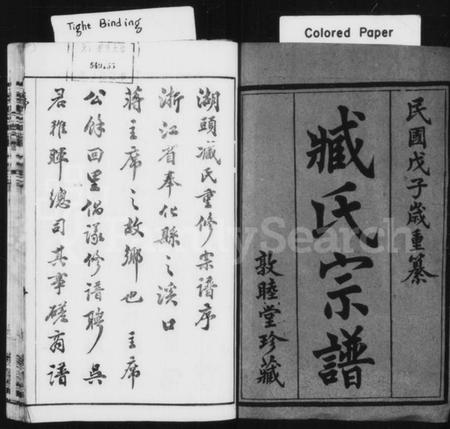 Tight Binding
Colored Paper
549.55
民國戊子歲重纂
臧氏宗譜
敦睦堂珍藏
湖頭臧氏重修宗譜序
浙江省奉化縣之溪口
蔣主席之故鄉也 主席
公餘回里倡議修譜聘 吳
君稚暉總司其事磋商譜
FamilySearch